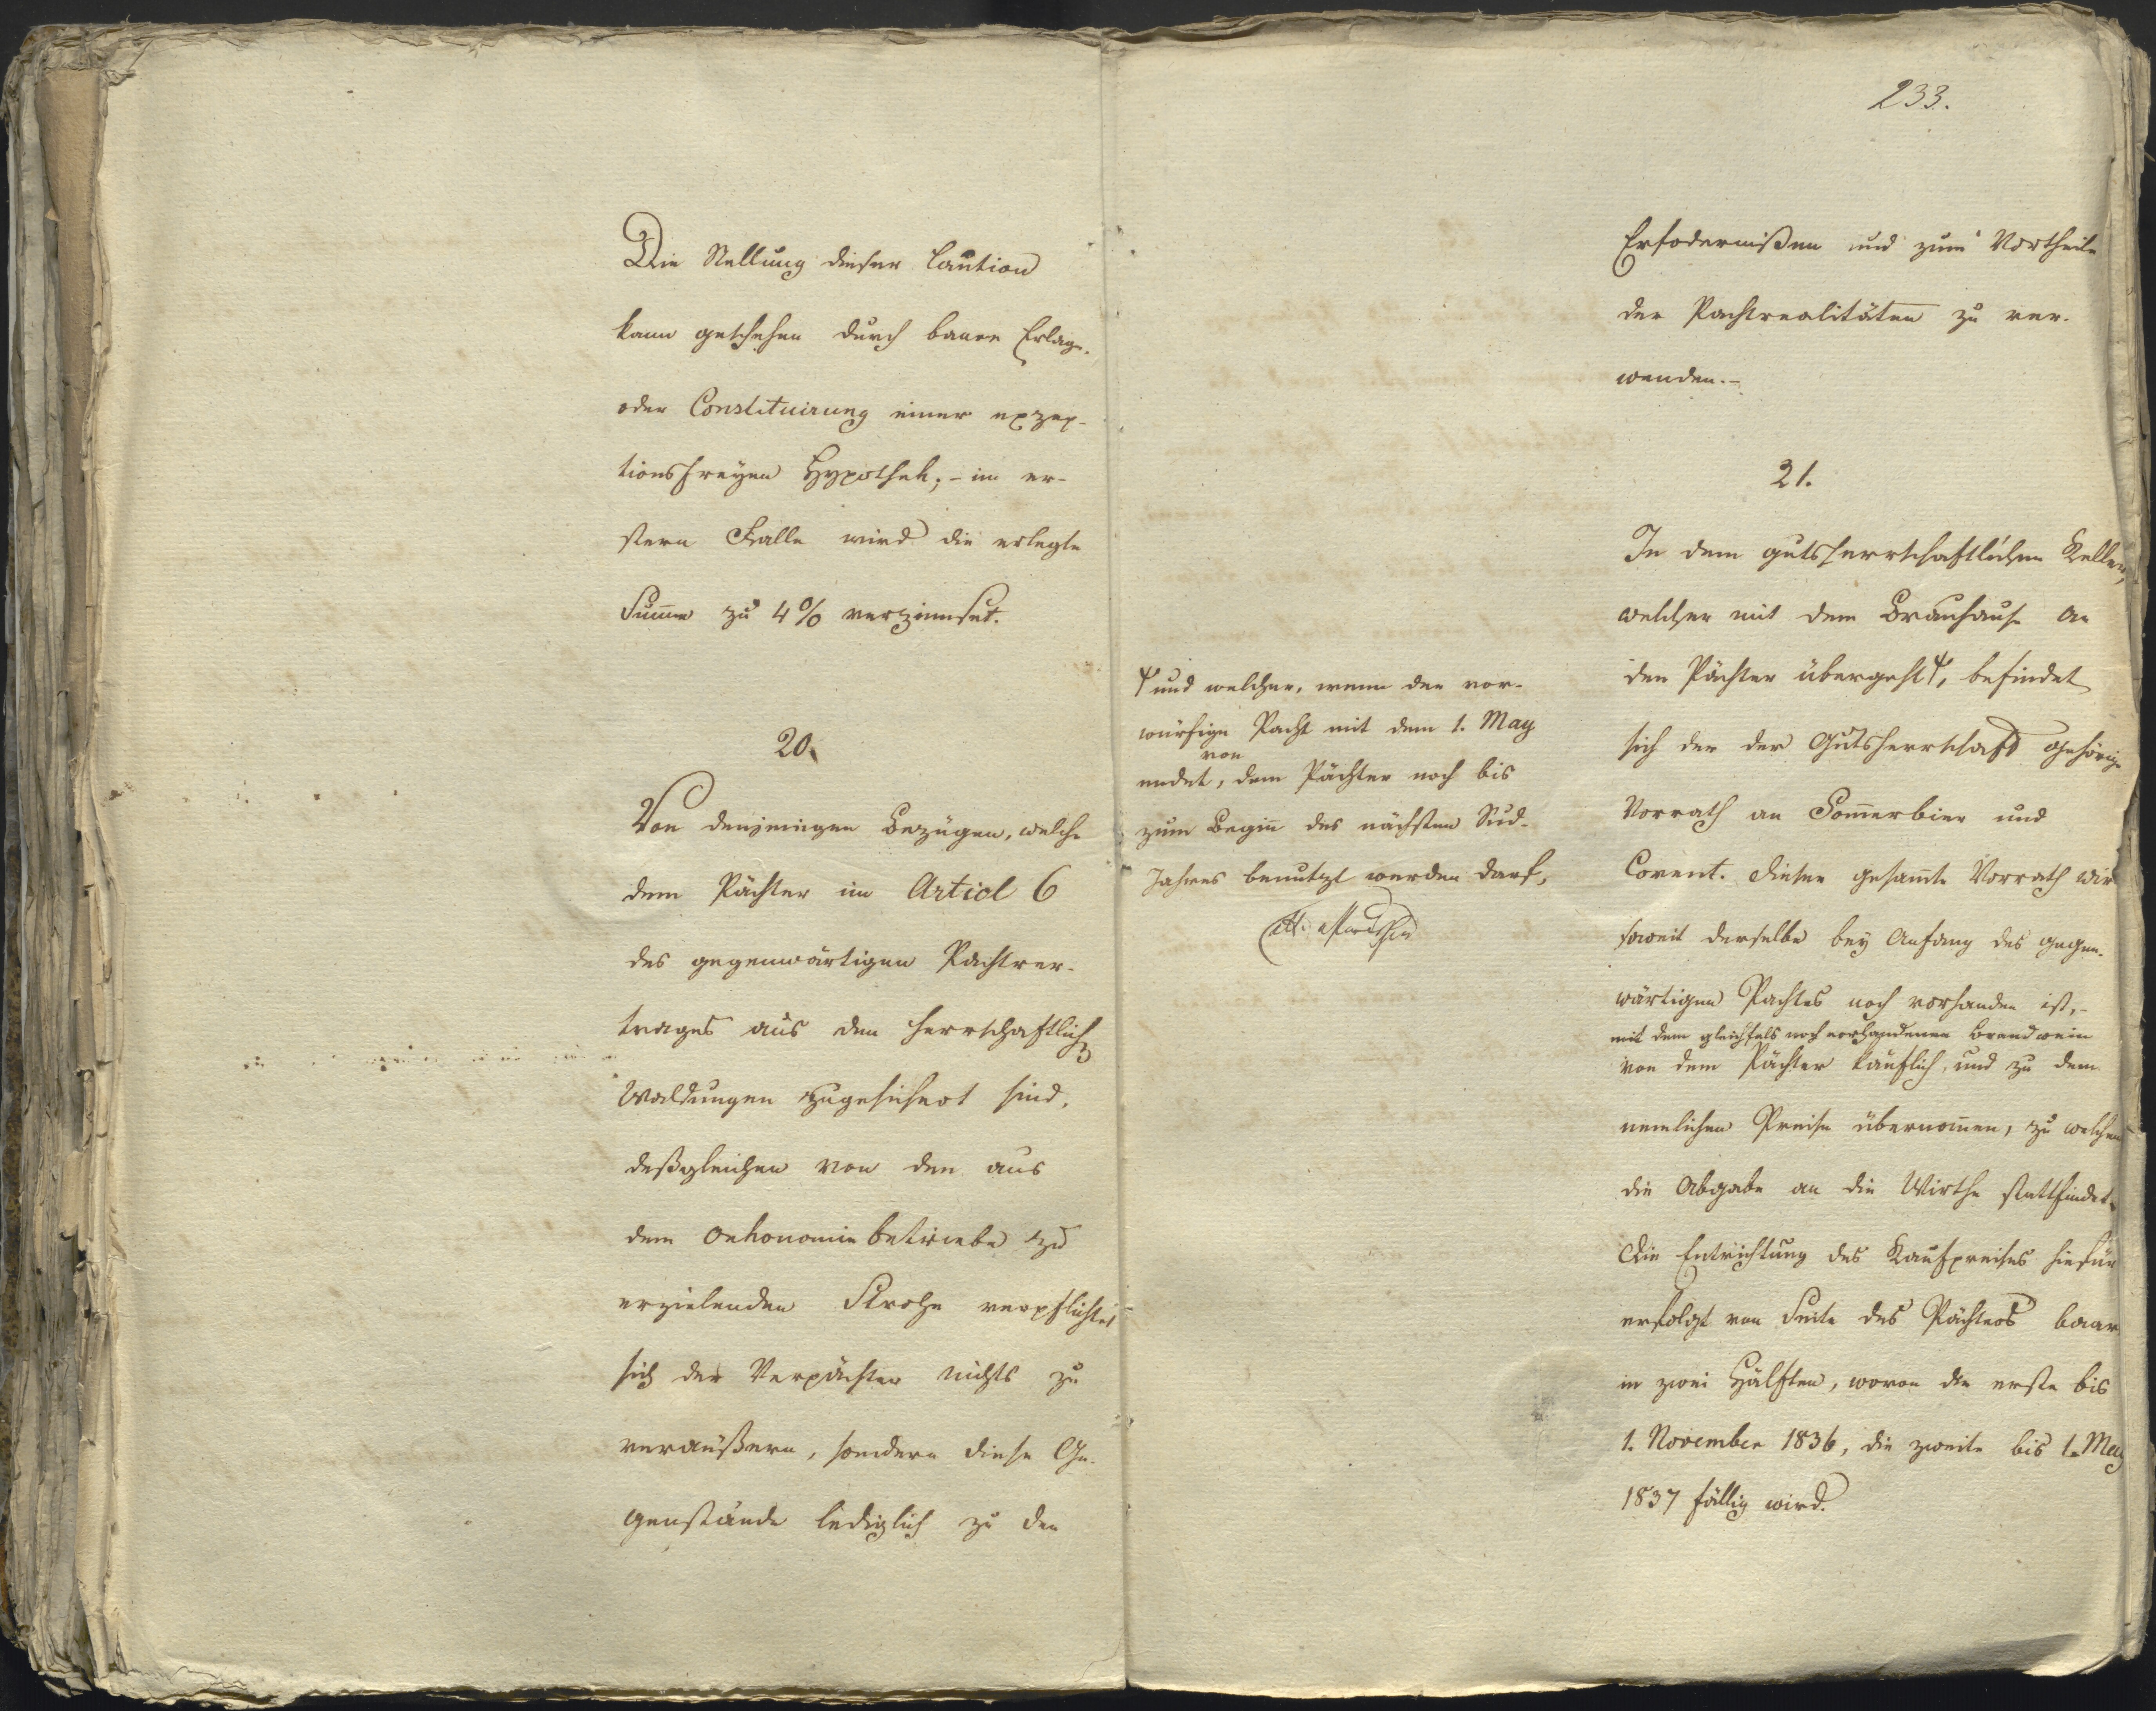 Die Stellung dieser Caution
kann geschehen durch baare Erlage,
oder Constituirung einer exzep-
tionsfreyen Hypothek; - im er-
stern Falle wird die erlegte
Summe zu 4% verzinset.
20.
Von denjenigen Bezügen, welche
dem Pächter im Articl 6
des gegenwärtigen Pachtver-
trages aus den herrschaftlichen
Waldungen zugesichert sind,
deßgleichen von den aus
dem Oekonomiebetriebe zu
erzielenden Stroh verpflichtet
sich der Verpächter nichts zu
veräußern, sondern diese Ge-
genstände lediglich zu den
233.
Erfodernißen und zum Vortheile
der Pachtrealitäten zu ver-
wenden.-
21.
In dem gutsherrschaftlichen Keller,
welcher mit dem Brauhause an
den Pächter übergeht, befindet
sich der der Gutsherrschaft gehörige
Vorrath an Sommerbier und
Covent. Dieser gesammte Vorrath wird
soweit derselbe bey Anfang des gegen-
wärtigen Pachtes noch vorhanden ist,-
mit dem gleichfals noch vorhandenen Brandwein
von dem Pächter käuflich, und zu dem
nemlichen Preise übernommen, zu welchem
die Abgabe an die Wirthe stattfindet.
Die Entrichtung des Kaufpreises hiefür
erfolgt von Seite des Pächters baar
in zwei Hälften, wovon die erste bis
1. November 1836, die zweite bis 1. May
1837 fällig wird.
und welcher, wenn der vor-
würfige Pacht mit dem 1. May
von
endet, dem Pächter noch bis
zum Beginn des nächsten Sud-
Jahres benutzt werden darf,